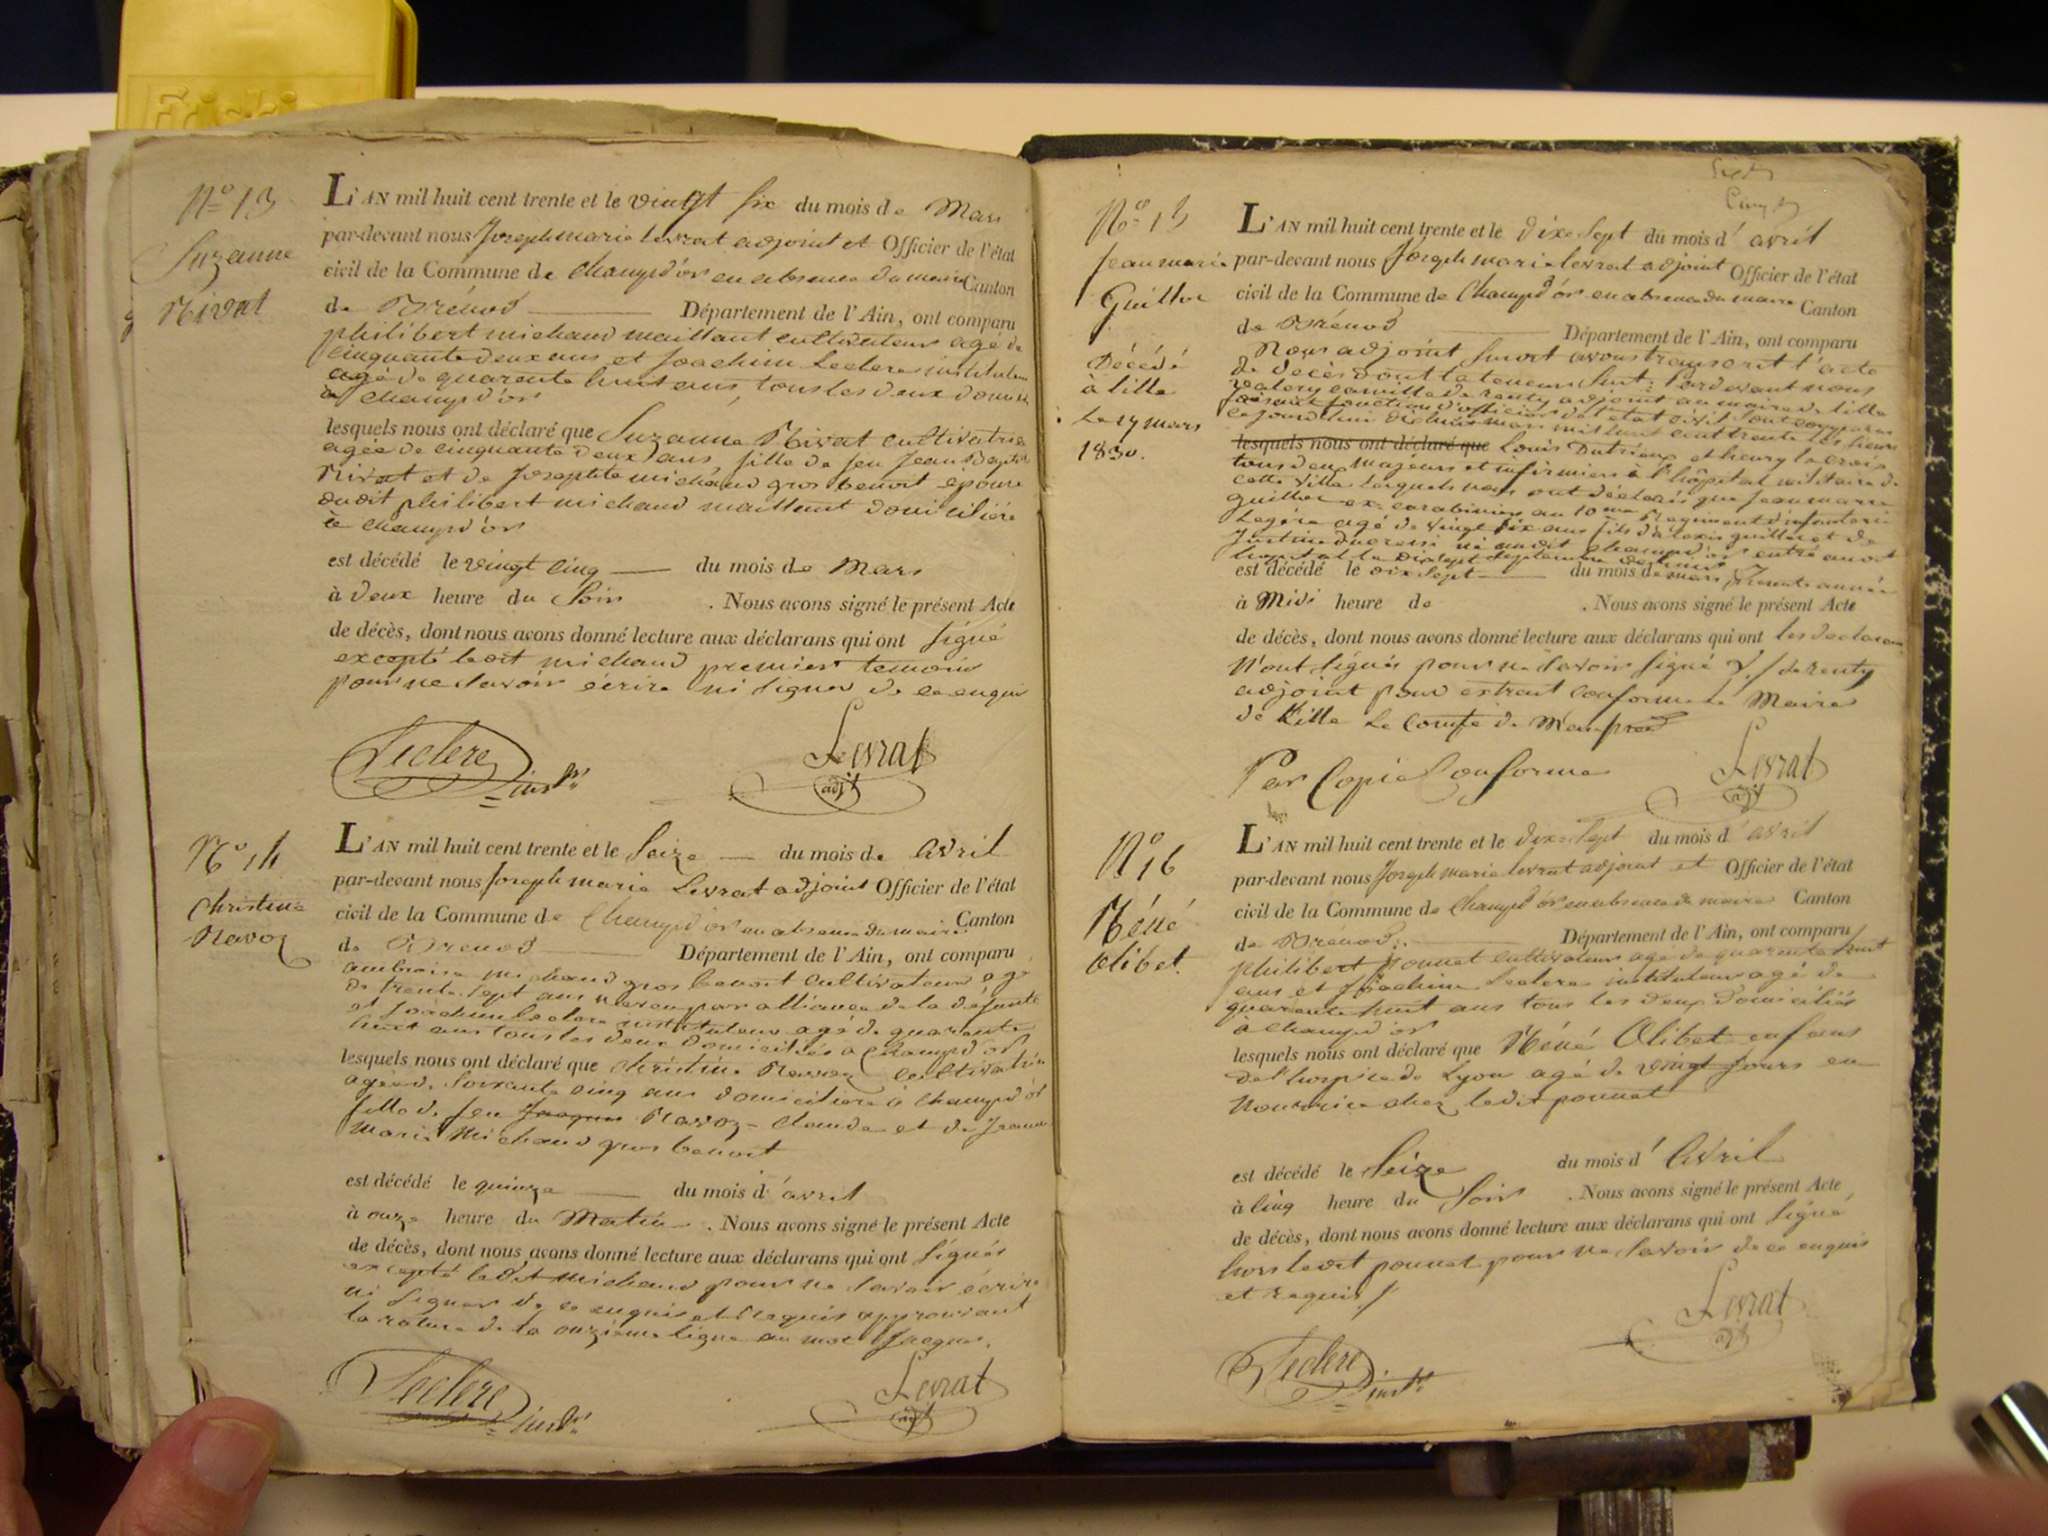 Friskies
N° 13
Suzanne
Nivat
L'AN mil huit cent trente et le vingt six du mois de Mars
par-devant nous Joseph marie Levrat adjoint et Officier de l'état
civil de la Commune de Champd'or en absence du maire Canton
de Brénod Département de l'Ain, ont comparu
philibert michaud maillant cultivateur agé de
cinquante deux ans et Joachim Leclerc instituteur
agé de quarante huit ans, tous les deux domiciliés
à champd'or
lesquels nous ont déclaré que Suzanne Nivat cultivatrice
agée de cinquante deux ans, fille de feu Jean Baptiste
Nivat et de Josephte michaud gros benoit épouse
dudit philibert michaud maillant domiciliée
à champd'or
est décédé le vingt cinq du mois de Mars
à deux heure du Soir . Nous avons signé le présent Acte
de décès, dont nous avons donné lecture aux déclarans qui ont signé
excepté ledit michaud premier temoin
pour ne savoir écrire ni signer de ce enquis
Leclerc instr
Levrat
adjt
N° 14
Christine
Ravoz
L'AN mil huit cent trente et le Seize du mois de Avril
par-devant nous Joseph marie Levrat adjoint Officier de l'état
civil de la Commune de Champd'or en absence du maire Canton
de Brénod Département de l'Ain, ont comparu
ambroise michaud gros benoit cultivateur agé
de trente sept ans neveu par alliance de la défunte
et Joachim Leclerc instituteur agé de quarante
huit ans tous les deux domiciliés à Champd'or
lesquels nous ont déclaré que christine Ravoz cultivatrice
agée de soixante cinq ans domiciliée à champd'or
fille de feu Jacques Ravoz Claude et de
marie Michaud gros benoit
est décédé le quinze du mois d'avril
à onze heure du Matin . Nous avons signé le présent Acte
de décès, dont nous avons donné lecture aux déclarans qui ont signés
excepté ledit michaud pour ne savoir écrire
ni signer de ce enquis et requis approuvant
la rature de la onzième ligne au mot Jacques.
Leclerc instr
Levrat
adjt
N° 15
Jean marie
Guillot
Décédé
à lille
Le 17 mars
1830.
L'AN mil huit cent trente et le dix Sept du mois d'avril
par-devant nous Joseph marie Levrat adjoint Officier de l'état
civil de la Commune de Champd'or en absence du maire Canton
de Brénod Département de l'Ain, ont comparu
Nous adjoint avons transcrit l'acte
de décès dont la teneur suit: Pardevant nous
valery camille de renty adjoint au maire de lille
faisant fonction d'officier de l'état civil sont comparus
cejourd'hui dix huit mars mil huit cent trente
lesquels nous ont déclaré que Louis Dutrieux et henry lacroix
tous deux majeurs et infirmiers à l'hôpital militaire de
cette ville lesquels nous ont déclaré que Jean marie
guillot ex carabinier au 10me Regiment d'infanterie
Legère agé de vingt six ans fils d'alexis guillot et de
Justine ducressi né audit champd'or entré audit
hopital le dix sept septembre dernier
est décédé le dix Sept du mois de mars presente année
à Midi heure de . Nous avons signé le présent Acte
de décès, dont nous avons donné lecture aux déclarans qui ont les declarans
n'ont signés pour ne savoir signé V. de renty
adjoint pour extrait conforme le Maire
de Lille Le Comte de
Par Copie Conforme
Levrat
adjt
N° 16
Réné
Olibet.
L'AN mil huit cent trente et le dix-Sept du mois d'avril
par-devant nous Joseph marie Levrat adjoint et Officier de l'état
civil de la Commune de Champd'or en absence du maire Canton
de Brénod. Département de l'Ain, ont comparu
philibert ponnet cultivateur agé de quarante huit
ans et Joachim Leclerc instituteur agé de
quarante huit ans tous les deux domiciliés
à champd'or
lesquels nous ont déclaré que Réné Olibet enfant
de l'hospice de Lyon agé de vingt jours en
nourrice chez ledit ponnet
est décédé le Seize du mois d'Avril
à cinq heure du Soir . Nous avons signé le présent Acte
de décès, dont nous avons donné lecture aux déclarans qui ont signé
hors ledit ponnet pour ne savoir de ce enquis
et requis
Levrat
adjt
Leclerc instr